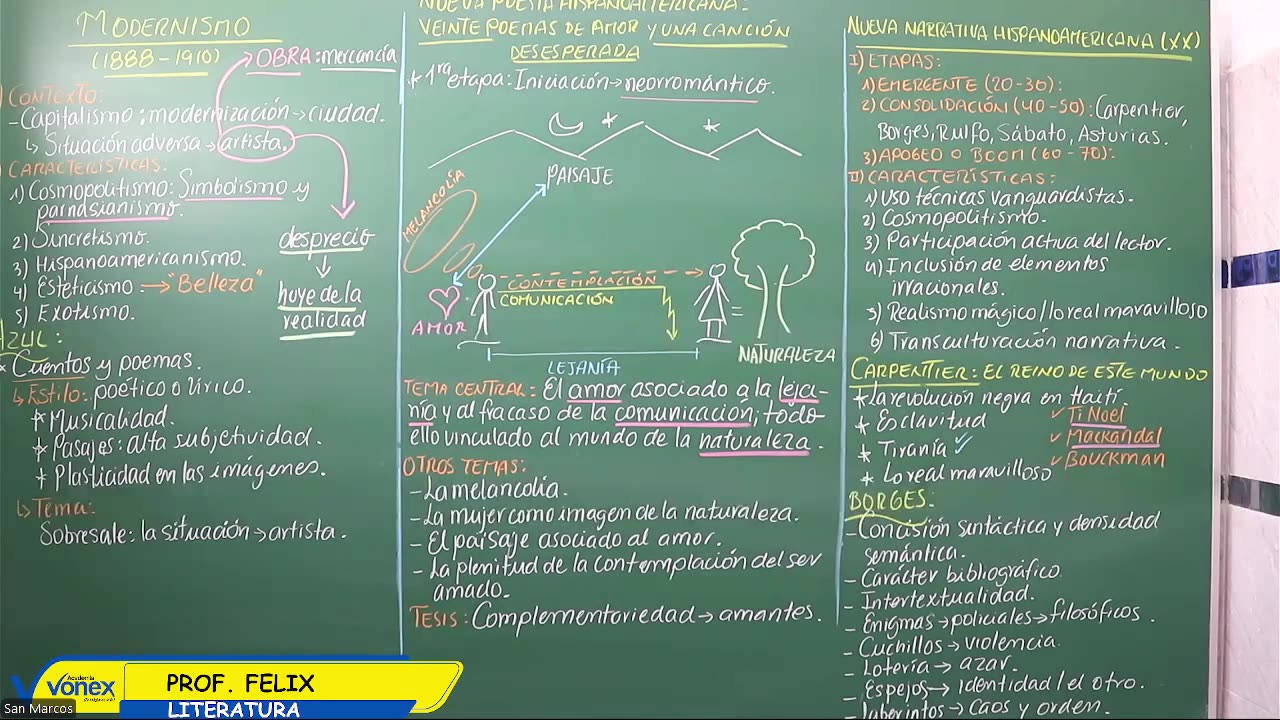 MODERNISMO
(1888-1910)
OBRA: mercancía
CONTEXTO:
- Capitalismo: modernización → ciudad.
↳ Situación adversa → artista.
CARACTERÍSTICAS:
1) Cosmopolitismo: Simbolismo y
parnasianismo.
2) Sincretismo.
3) Hispanoamericanismo.
4) Esteticismo → "Belleza"
5) Exotismo.
desprecio
↓
huye de la
realidad
AZUL:
* Cuentos y poemas.
↳ Estilo: poético o lírico.
* Musicalidad.
* Pasajes: alta subjetividad.
* Plasticidad en las imágenes.
↳ Tema:
Sobresale: la situación → artista.
NUEVA POESÍA HISPANOAMERICANA:
VEINTE POEMAS DE AMOR Y UNA CANCIÓN
DESESPERADA
* 1ra etapa: Iniciación → neorromántico.
PAISAJE
MELANCOLÍA
CONTEMPLACIÓN
COMUNICACIÓN
AMOR
=
LEJANÍA
NATURALEZA
TEMA CENTRAL: El amor asociado a la leja-
nía y al fracaso de la comunicación; todo
ello vinculado al mundo de la naturaleza.
OTROS TEMAS:
- La melancolía.
- La mujer como imagen de la naturaleza.
- El paisaje asociado al amor.
- La plenitud de la contemplación del ser
amado.
TESIS: Complementariedad → amantes.
NUEVA NARRATIVA HISPANOAMERICANA (XX)
I) ETAPAS:
1) EMERGENTE (20-30):
2) CONSOLIDACIÓN (40-50): Carpentier,
Borges, Rulfo, Sábato, Asturias.
3) APOGEO O BOOM (60-70):
II) CARACTERÍSTICAS:
1) Uso técnicas vanguardistas.
2) Cosmopolitismo.
3) Participación activa del lector.
4) Inclusión de elementos
irracionales.
5) Realismo mágico/lo real maravilloso
6) Transculturación narrativa.
CARPENTIER: EL REINO DE ESTE MUNDO
* La revolución negra en Haití.
* Esclavitud
* Tiranía ✓
* Lo real maravilloso
✓ Ti Noel
✓ Mackandal
✓ Bouckman
BORGES:
- Concisión sintáctica y densidad
semántica.
- Carácter bibliográfico.
- Intertextualidad.
- Enigmas → policiales → filosóficos.
- Cuchillos → violencia.
- Lotería → azar.
- Espejos → identidad / el otro.
- laberintos → caos y orden.
Academia
VONEX
PROF. FELIX
LITERATURA
San Marcos